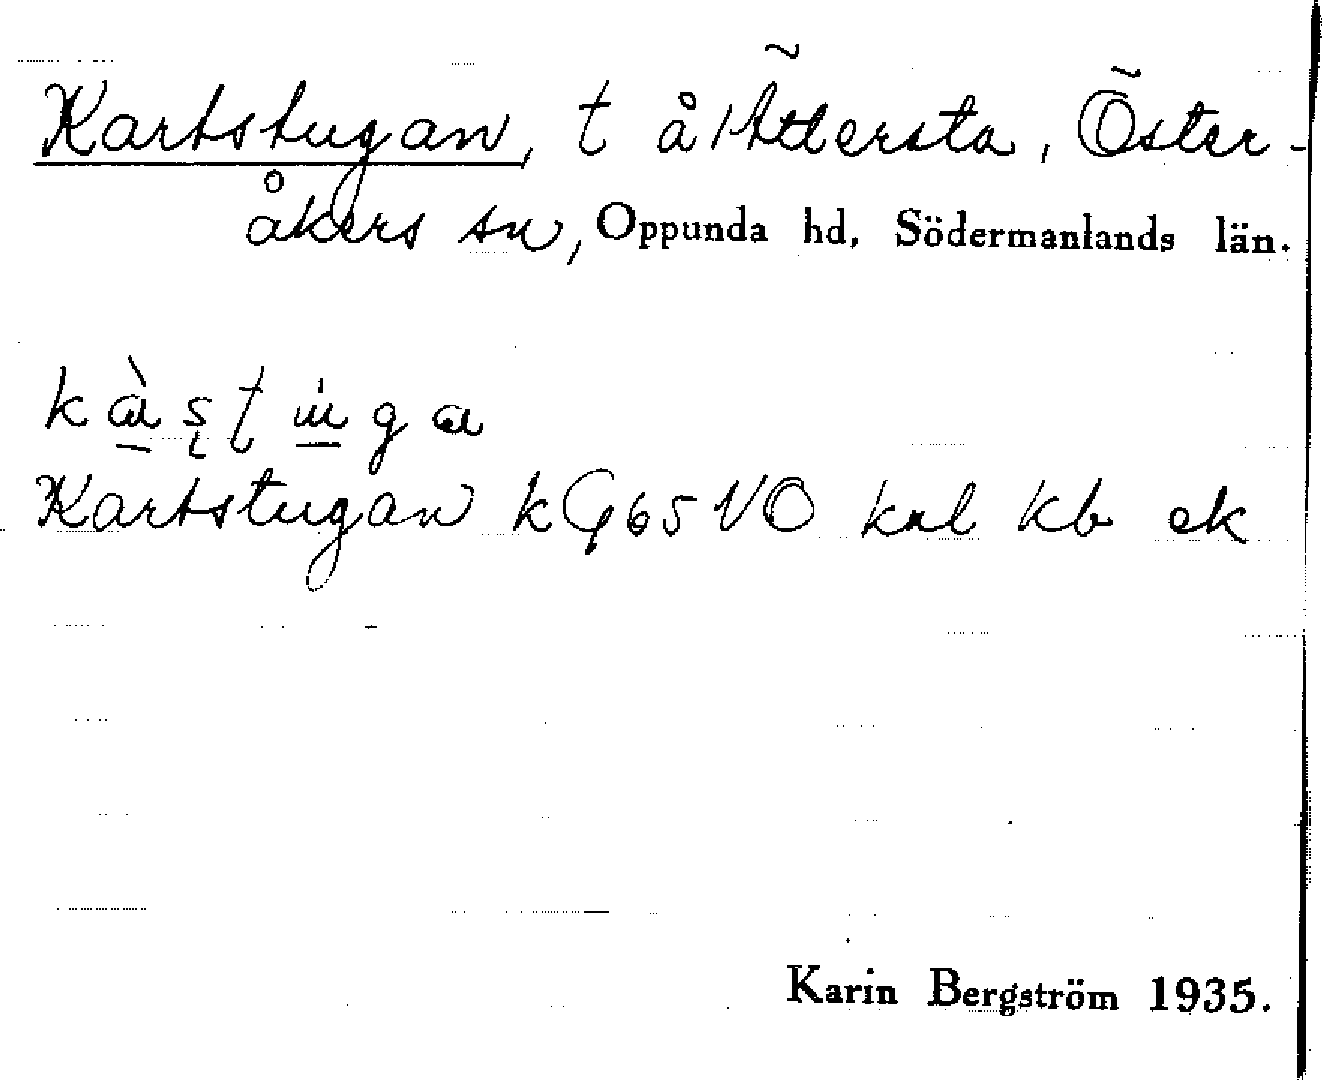 Kartstugan, t å Ättersta, Öster-
åkers sn, Oppunda hd, Södermanlands län.
Kartstugan k G65 VÖ knl kb ek
Karin Bergström 1935.